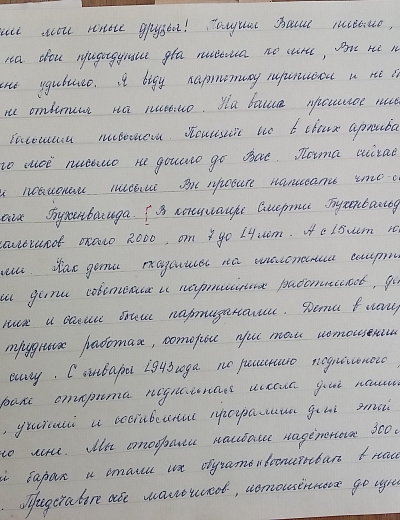 мои юные друзья! Получил Ваше письмо,
на свои предыдущие два письма ко мне, Вы не п
удивило. Я веду картотеку переписки и не б
не ответил на письмо. На ваше прошлое пис
большим письмом. Поищите его в своих архива
моё письмо не дошло до Вас. Почта сейчас
последнем письме Вы просите написать что-
Бухенвальда. [В концлагере смерти Бухенвальд
мальчиков около 2000, от 7 до 14 лет. А с 15 лет
Как дети оказались на положении смерт
дети советских и партийных работников, де
них и сами были партизанами. Дети в лагер
трудных работах, которые при том истощении
силу. С января 1943 года по решению подпольного
раке открыта подпольная школа для
, учителей и составление программы для этой
но мне. Мы отобрали наиболее надёжных 300
й барак и стали их обучать и воспитывать в
Представьте себе мальчиков, истощённых до